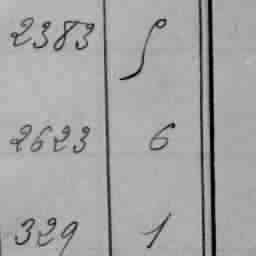 2383 ʃ
2623 6
329 1